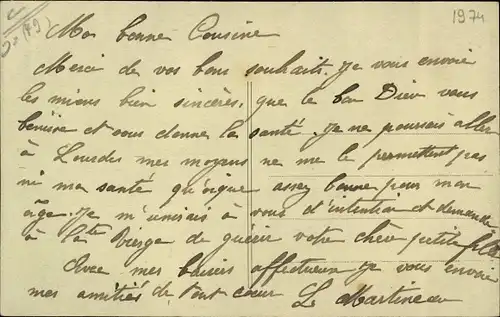 1974
(79)
Ma bonne Cousine
Merci de vos bons souhaits. Je vous envoie
les miens bien sincères, que le bon Dieu vous
bénisse et vous donne la santé. Je ne pourrais aller
à Lourdes mes moyens ne me le permettent pas
ni ma santé quoique assez bonne pour mon
âge. Je m'unirais à vous d'intention et demande
à la Ste Vierge de guérir votre chère petite fille
Avec mes baisers affectueux je vous envoie
mes amitiés de tout cœur L. Martineau